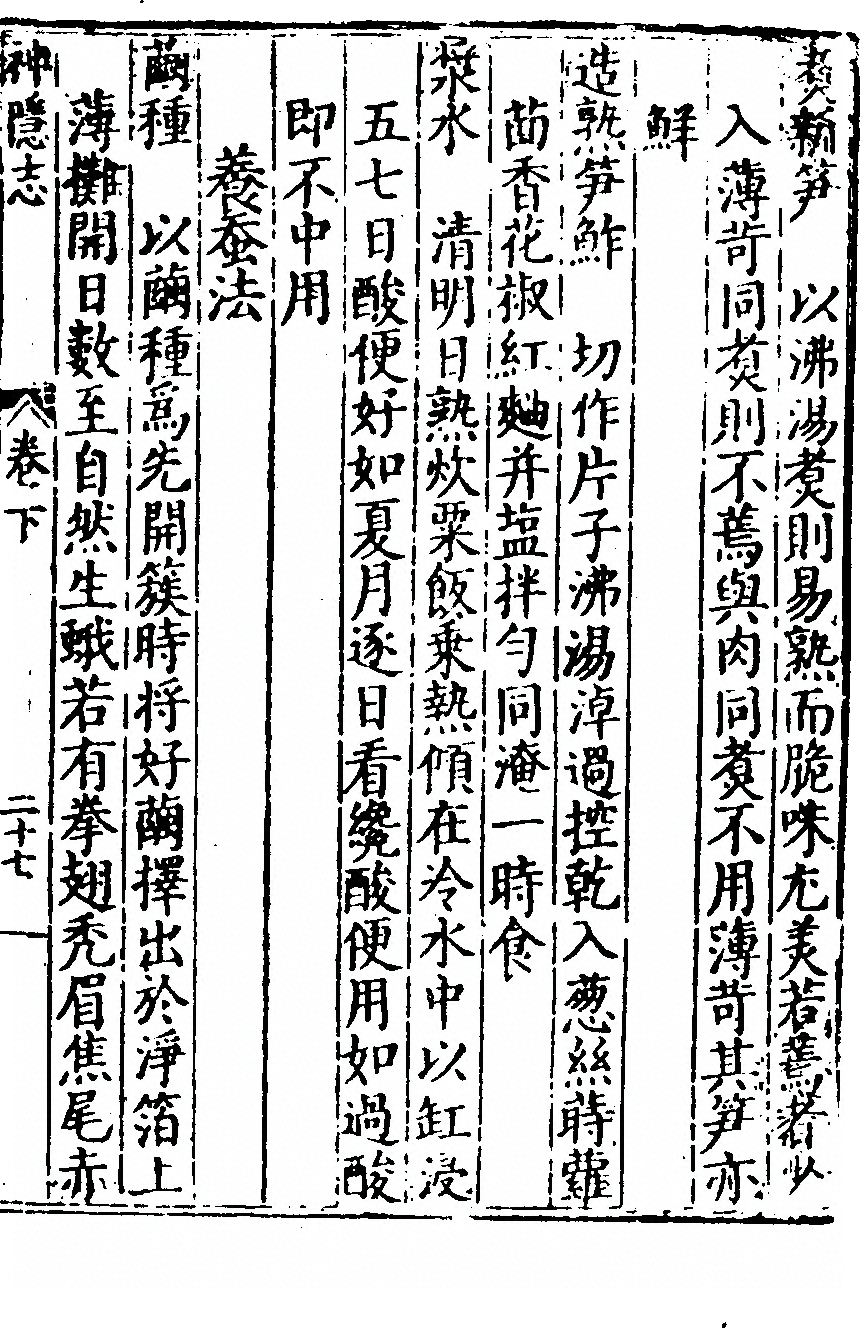 煑新笋　以沸湯煑則易熟而脆味尤美若蔫者少
入薄苛同煑則不蔫與肉同煑不用薄苛其笋亦
鮮
造熟笋鮓　切作片子沸湯淖過控乾入葱絲蒔蘿
茴香花椒紅麯并塩拌匀同淹一時食
漿水　清明日熟炊粟飯乗熱傾在冷水中以缸浸
五七日酸便好如夏月逐日看纔酸便用如過酸
即不中用
養蚕法
繭種　以繭種爲先開簇時将好繭擇出於淨箔上
薄攤開日數至自然生蛾若有拳翅秃眉焦尾赤
神隱志　卷下　二十七